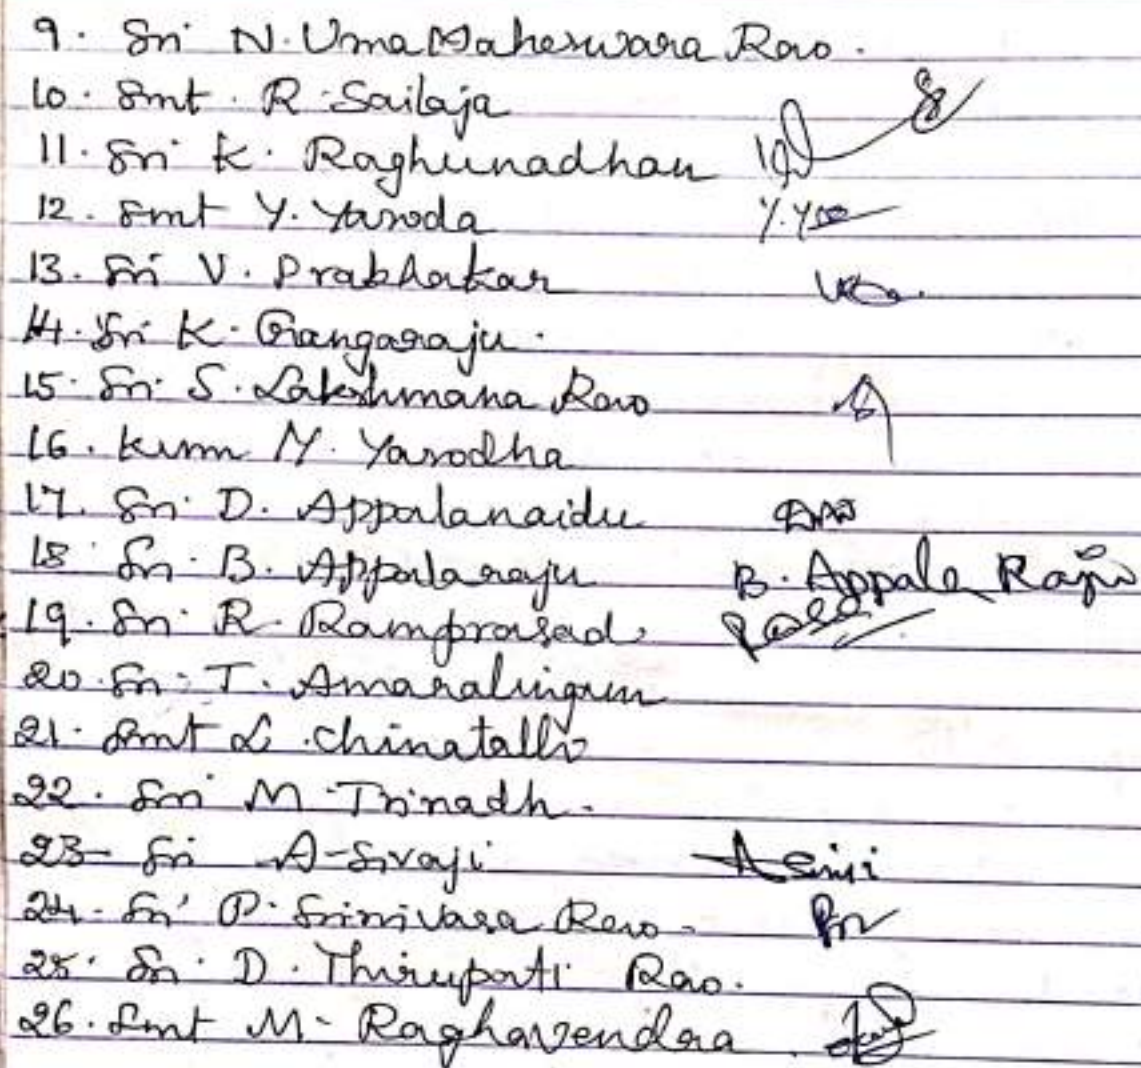 9. Sri N. Uma Maheswara Rao.
10. Smt. R. Sailaja
11. Sri K. Raghunadhan
12. Smt Y. Yasoda
13. Sri V. Prabhakar
14. Sri K. Gangaraju.
15. Sri S. Lakshmana Rao
16. Kum M. Yasodha
17. Sri D. Appalanaidu
18 Sri. B. Appalaraju B. Appala Raju
19. Sri R. Ramprasad.
20. Sri T. Amaralingum
21. Smt L. Chinatalli
22. Sri M. Trinadh.
23- Sri A-Sivaji
24. Sri P. Srinivasa Rao-
25. Sri. D. Thirupati Rao.
26. Smt M. Raghavendra